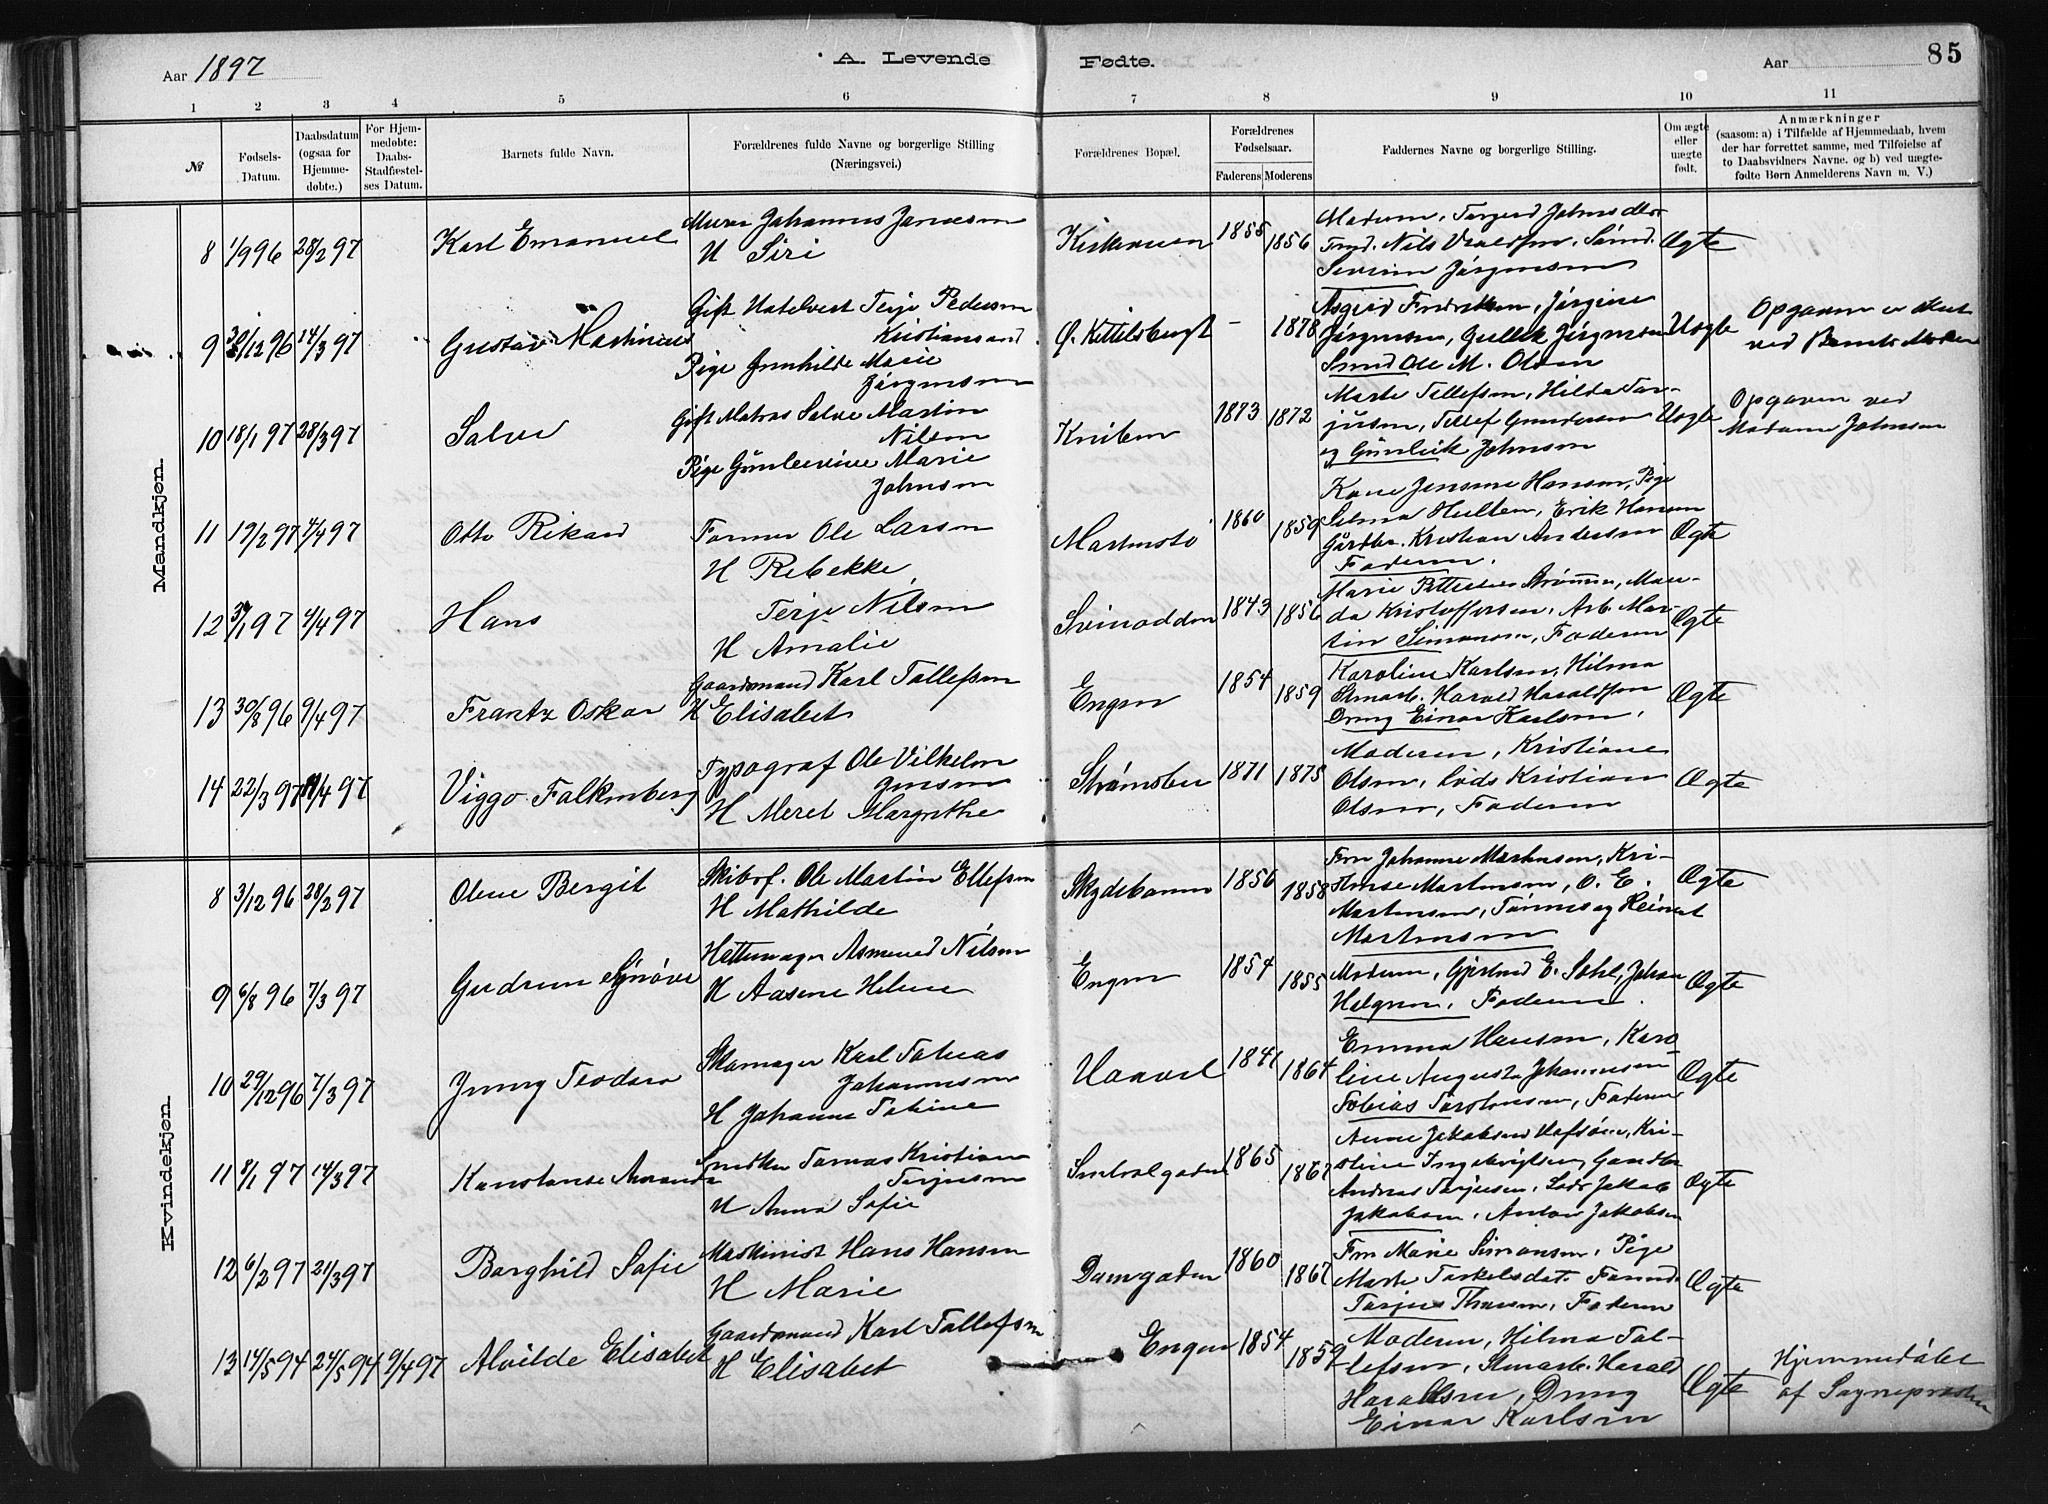 Aar 1897
A. Levende Fødte.
Aar
85
1 2 3 4 5 6 7 8 9 10 11
№
Fødsels-Datum.
Daabsdatum (ogsaa for Hjemme-døbte.)
For Hjem-medøbte: Daabs-Stadfæstel-ses Datum.
Barnets fulde Navn.
Forældrenes fulde Navne og borgerlige Stilling (Næringsvei.)
Forældrenes Bopæl.
Forældrenes Fødselsaar.
Faderens Moderens
Faddernes Navne og borgerlige Stilling.
Om ægte eller uægte født.
Anmærkninger (saasom: a) i Tilfælde af Hjemmedaab, hvem der har forrettet samme, med Tilføielse af to Daabsvidners Navne. og b) ved uægte-fødte Børn Anmelderens Navn m. V.)
Mandkjøn.
8 1/9 96 28/2 97 Karl Emanuel
Murer Johannes
H Siri
1855 1856
Moderen, Torgerd
Nils
Severin Jörgensen
Ægte
9 /12 96 14/3 97 Gustav Martinius
Gift Terje Pedersen
Kristiansand
Pige Gunhilde Marie
Jörgensen
Ø. Kittelsbugt - 1878
Asgjerd Fredriksen, Jörgine
Jörgensen, Gullik Jörgensen
Ole M. Olsen
Uægte
Opgaven er
ved Barnets Moder
10 18/1 97 28/3 97 Salve
Gift Matros Salve Martin
Nilsen
Pige Marie
Johnsen
1873 1872
Marte Tellefsen, Hilda Tar-
jusen, Tellef Gundersen
og Gunleik Johnsen
Uægte
Opgaven ved
Madame Johnsen
11 19/2 97 4/4 97 Otto Rikard
Former Ole Larsen
H Rebekke
1860 1859
Kone Jensine Hansen, Pige
Selma Erik Hansen
Kristian Andersen
Faderen.
Ægte
12 3/1 97 4/4 97 Hans
Terje Nilsen
H Amalie
Svinodden 1843 1856
Marie Mari-
da Kristoffersen, Arb. Mar-
tin Simonsen, Faderen
Ægte
13 30/8 96 9/4 97 Frantz Oskar
Gaardmand Karl Tallefsen
H Elisabet
Engen 1854 1859
Karoline Karlsen, Hilma
Harald Haraldsen
Dreng Einar Karlsen.
Ægte
14 22/3 97 /4 97 Viggo Falkenberg
Typograf Ole Vilhelm
Jensen
H Meret Margrethe
Strømsbu 1871 1875
Moderen, Kristiane
Olsen, Lods Kristian
Olsen, Faderen
Ægte
Kvindekjøn.
8 3/12 96 28/2 97 Olene Bergit
Skibsf. Ole Martin Ellefsen
H Mathilde
Skydebanen 1856 1858
Fru Johanne Martensen, Kri-
stense Martensen, O. E.
Martensen, Tönnes og Reinert
Martensen
Ægte
9 6/8 96 7/3 97 Gudrun Synöve
Hattemager Asmund Nilsen
H Aasene Helene
Engen 1854 1855
Moderen, Gjertrud E. Johan
Faderen.
Ægte
10 29/12 96 7/3 97 Jenny Teodora
Skomager Karl Tobias
Johannesen
H Johanne Tobine
1841 1864
Emma Hansen, Karo-
line Augusta Johannesen
Tobias Faderen
Ægte
11 8/1 97 14/3 97 Konstanse Amanda
Tomas Kristian
Tarjusen
H Anna Sofie
1865 1867
Anne Jakobsen Kri-
stine
Andreas Tarjusen, Lods Jakob
Jakobsen, Anton Jakobsen
Ægte
12 6/2 97 21/3 97 Borghild Sofie
Maskinist Hans Hansen
H Marie
Damgaden 1860 1867
Fru Marie Simonsen, Pige
Marte Torkelsdat.
Tarjus Faderen
Ægte
13 14/5 94 24/5 94 9/4 97 Alvilde Elisabet
Gaardmand Karl Tallefsen
H Elisabet
Engen 1854 1859
Moderen, Hilma Tal-
lefsen, Harald
Haraldsen, Dreng
Einar Karlsen
Ægte
Hjemmedöbt
af Sognepresten